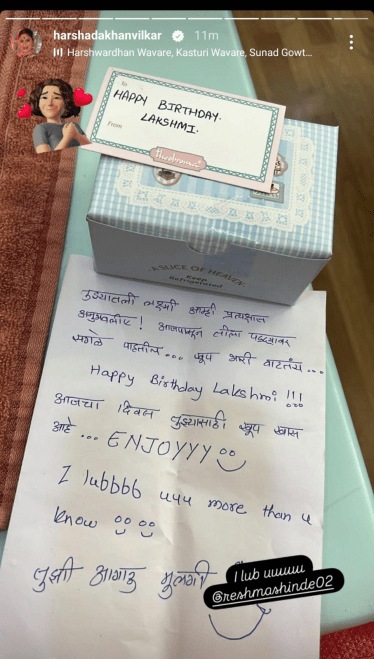 harshadakhanvilkar 11m
Harshwardhan Wavare, Kasturi Wavare, Sunad Gowt...
To
HAPPY BIRTHDAY.
LAKSHMI.
From
Theobroma
A SLICE OF HEAVEN
Keep
Refrigerated
तुझ्यातली लक्ष्मी आम्ही प्रत्यक्षात
अनुभवलीए! आजपासून तीला पडद्यावर
सगळे पाहतील... खूप भारी वाटतंय...
Happy Birthday Lakshmi !!!
आजचा दिवस तुझ्यासाठी खूप खास
आहे ... ENJOYYY
I lubbbb uuu more than u
know
तुझी आगाऊ मुलगी
I lub uuuuu
@reshmashinde02